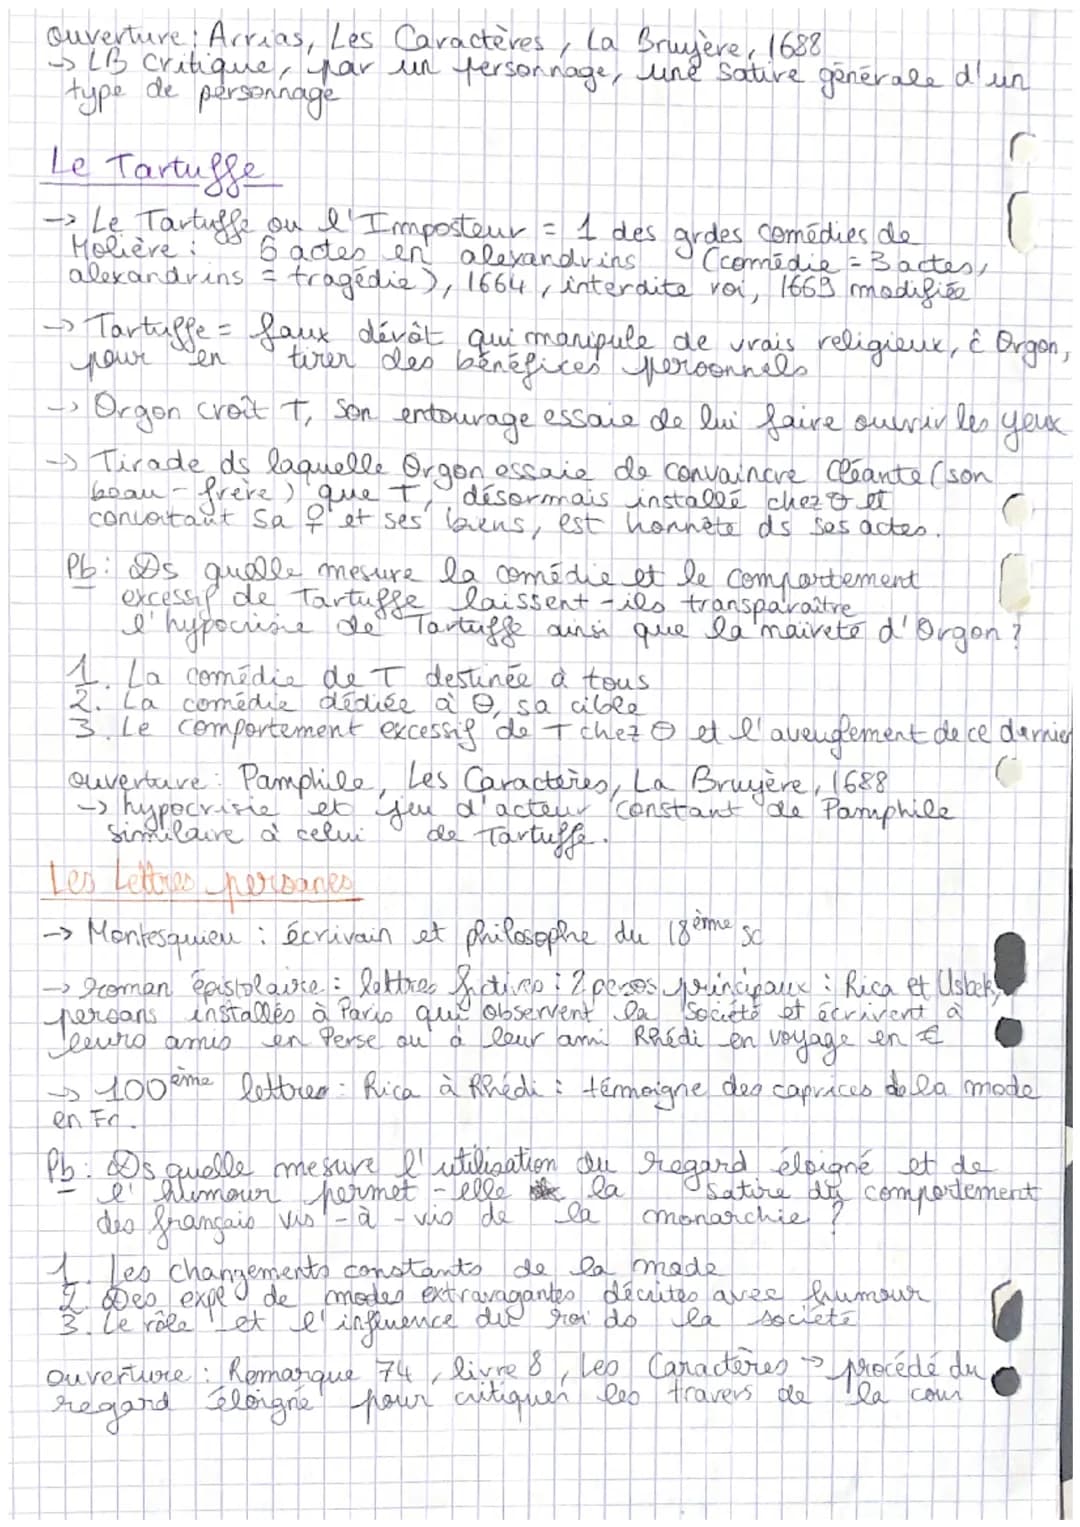 Ouverture : Arrias, Les Caractères, La Bruyère, 1688
-> LB critique, par un personnage, une satire générale d'un
type de personnage
Le Tartuffe
-> Le Tartuffe ou l'Imposteur = 1 des grdes comédies de
Molière : 5 actes en alexandrins (comédie = 3 actes,
alexandrins = tragédie), 1664, interdite roi, 1669 modifiée
-> Tartuffe = faux dévôt qui manipule de vrais religieux, ĉ Orgon,
pour en tirer des bénéfices personnels
-> Orgon croît T, son entourage essaie de lui faire ouvrir les yeux
-> Tirade ds laquelle Orgon essaie de convaincre Cléante (son
beau-frère) que T, désormais installé chez O et
convoitant sa ♀ et ses biens, est honnête ds ses actes.
Pb : Ds quelle mesure la comédie et le comportement
excessif de Tartuffe laissent-ils transparaître
l'hypocrisie de Tartuffe ainsi que la naïveté d'Orgon ?
1. La comédie de T destinée à tous
2. La comédie dédiée à O, sa cible
3. Le comportement excessif de T chez O et l'aveuglement de ce dernier
ouverture : Pamphile, Les Caractères, La Bruyère, 1688
-> hypocrisie et jeu d'acteur constant de Pamphile
similaire à celui de Tartuffe.
Les Lettres persanes
-> Montesquieu : écrivain et philosophe du 18ème sc
-> roman épistolaire : lettres fictives : 2 persos principaux : Rica et Usbek,
persans installés à Paris qui observent la société et écrivent à
leurs amis en Perse ou à leur ami Rhédi en voyage en €
-> 100ème lettres : Rica à Rhédi : témoigne des caprices de la mode
en Fr.
Pb : Ds quelle mesure l'utilisation du regard éloigné et de
l'humour permet-elle la satire du comportement
des français vis-à-vis de la monarchie ?
1. Les changements constants de la mode
2. Des expl de modes extravagantes décrites avec humour
3. Le rôle et l'influence du roi ds la société
ouverture : Remarque 74, livre 8, Les Caractères -> procédé du
regard éloigné pour critiquer les travers de la cour